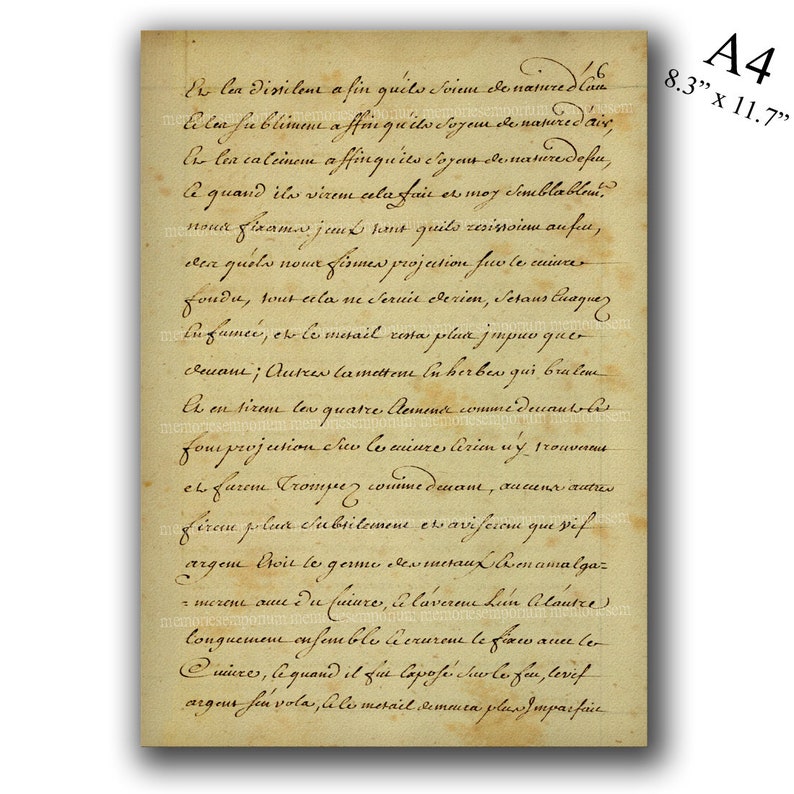 16
Et les distilent afin quils soient de nature d'eau
Et les subliment affin quils soyent de nature d'air,
Et les calcinent affin quils soyent de nature de feu,
Et quand ils virent cela fait et moy semblablemt.
nous fixames jceux tant quils resistoient au feu,
des quels nous fismes projection sur le cuivre
fondu, tout cela ne servit de rien,
En fumée, et le metail resta plus jmpur que
devant; Autres la mettent En herbes qui brulent
Et en tirent les quatre Elemens comme devant Et
font projection sur le cuivre Et rien n'y trouverent
et furent Trompez comme devant, aucuns autres
firent plus subtilement et aviserent que vif
argent Etoit le germe des metaux Et en amalga=
=merent avec du Cuivre, Et laverent L'un Et L'autre
longuement ensemble Et crurent le fixer avec le
Cuivre, Et quand il fut Exposé sur le feu, le vif
argent s'en vola, Et le metail demeura plus Jmparfait
A4
8.3” x 11.7”
memoriesemporium memoriesem